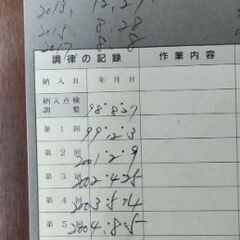 2013, 12, 27
2015, 8, 28
2017 8 8
調律の記録 作業内容
納入日 年月日
納入点検調整 98・8・27
第1回 99・12・3
第2回 2001・2・9
第3回 2002・4・25
第4回 2003・5・14
第5回 2004・8・5